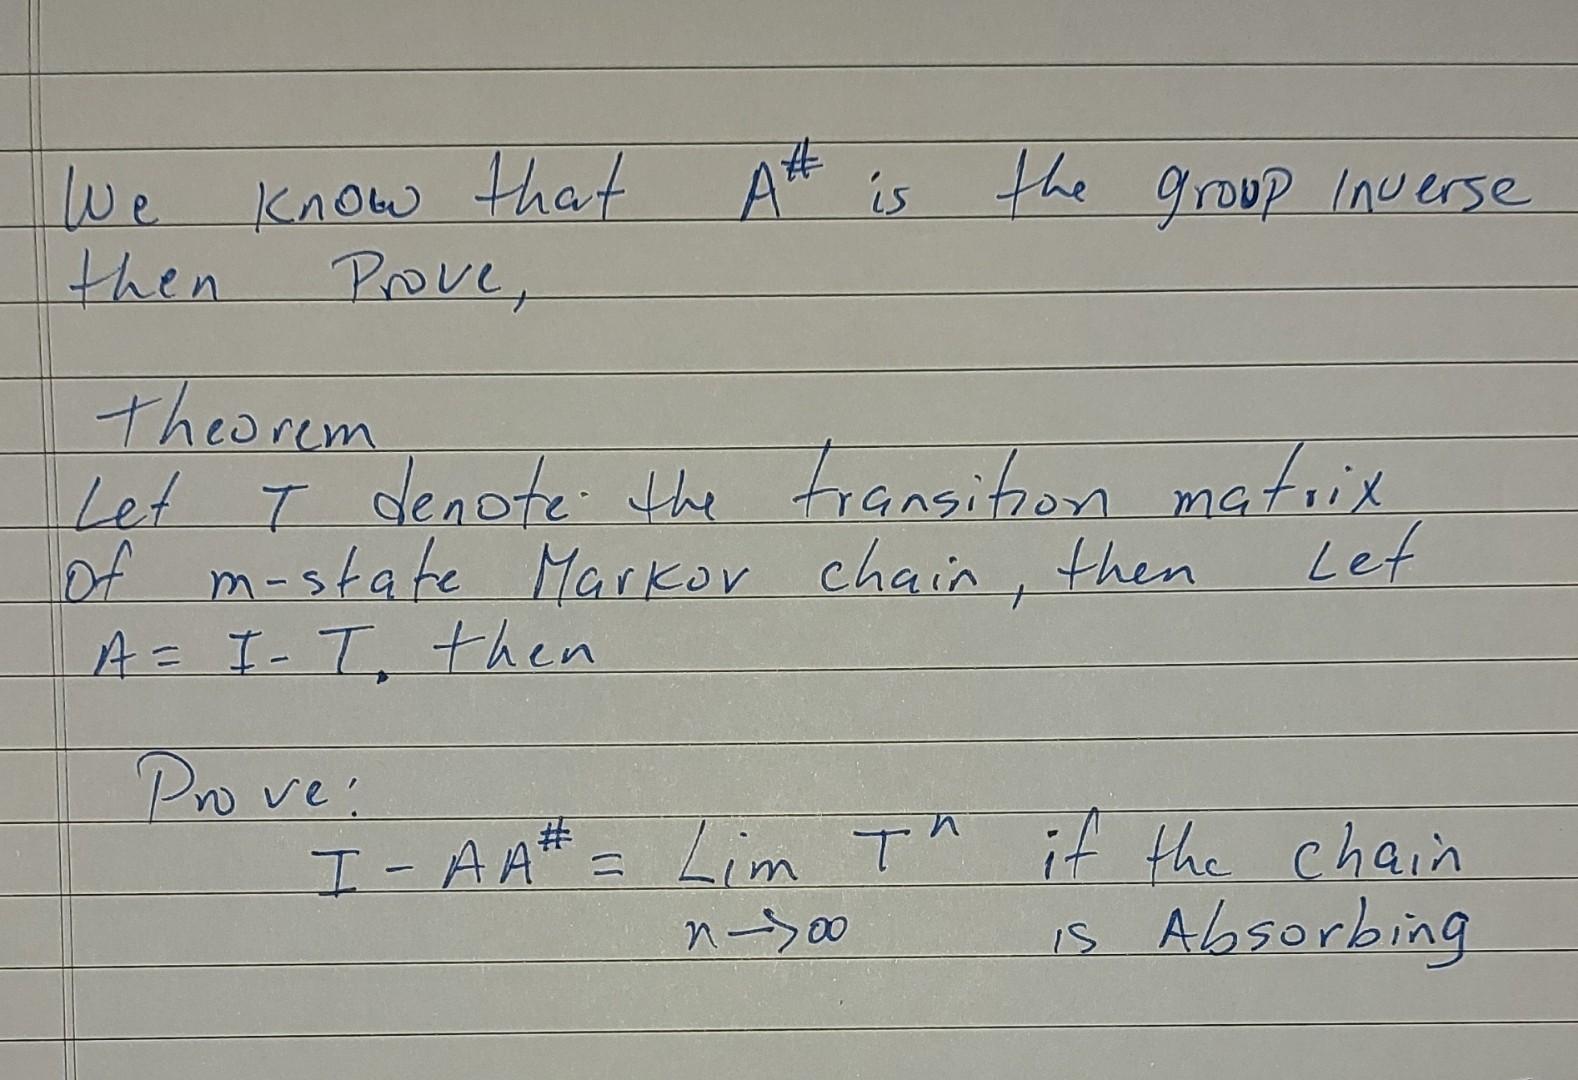 We know that A^# is the group inverse
then Prove,
Theorem
Let T denote the transition matrix
of m-state Markov chain, then Let
A = I - T. then
Prove:
I - AA^# = Lim T^n if the chain
n→∞ is Absorbing